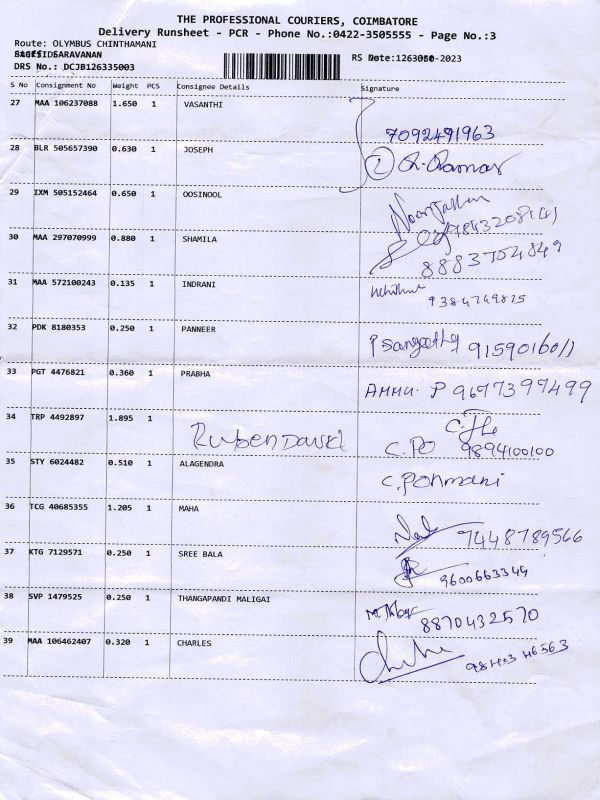 THE PROFESSIONAL COURIERS, COIMBATORE
Delivery Runsheet - PCR - Phone No.:0422-3505555 - Page No.:3
Route: OLYMBUS CHINTHAMANI
SARAVANAN
RS No
-2023
DRS No.: DCJB126335003
S No Consignment No Weight PCS Consignee Details Signature
27 MAA 106237088 1.650 1 VASANTHI
7092491963
28 BLR 505657390 0.630 1 JOSEPH
2
29 IXM 505152464 0.650 1 OOSINOOL
30 MAA 297070999 0.880 1 SHAMILA
8883704849
31 MAA 572100243 0.135 1 INDRANI
9384749825
32 PDK 8180353 0.250 1 PANNEER
P Sangeetha 9159016011
33 PGT 4476821 0.360 1 PRABHA
AMMU. P 9677397499
34 TRP 4492897 1.895 1 Ruben David
C. PO 9894100100
35 STY 6024482 0.510 1 ALAGENDRA
C. Ponmani
36 TCG 40685355 1.205 1 MAHA
7448789566
37 KTG 7129571 0.250 1 SREE BALA
9600663349
38 SVP 1479525 0.250 1 THANGAPANDI MALIGAI
8870432570
39 MAA 106462407 0.320 1 CHARLES